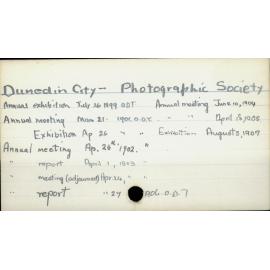 Dunedin City - Photographic Society
Annual exhibition July 26 1899 ODT Annual meeting June 10, 1904
Annual meeting Mar 21. 1901 O.D.T. " " April 13, 1905
Exhibition Ap 26 " " Exhibition August 3, 1907
Annual meeting Ap. 24th 1902. "
" report April 1, 1903 "
" meeting (adjourned) Apr. 24, " "
" report " 27 1906 O.D.T